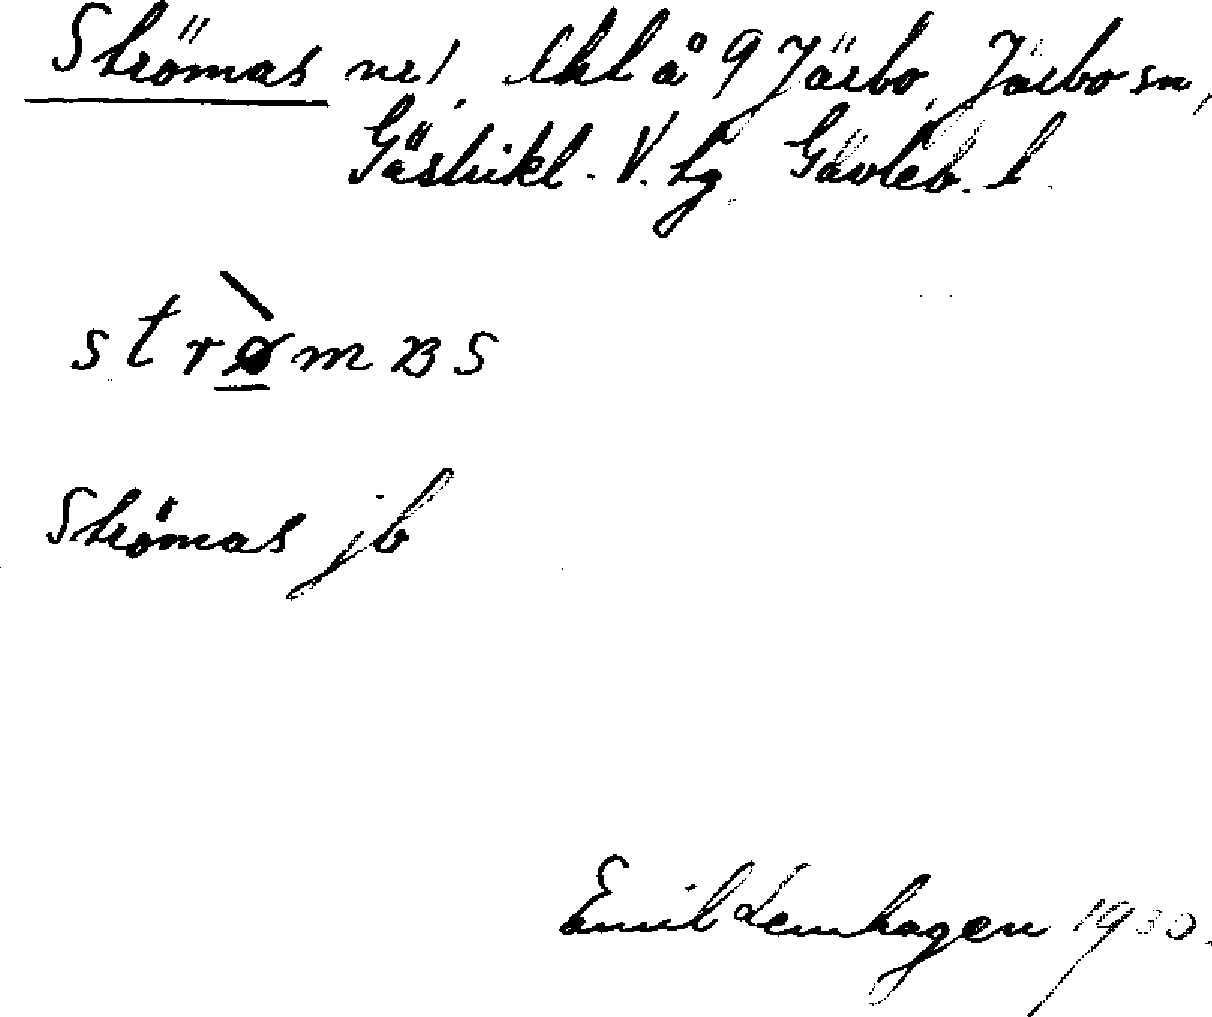 Strömas nr 1 lhl å 9 Järbo, Järbo sn,
Gästrikl. V. tg Gävleb. l.
strø̱̀mʙs
Strömas jb
Emil Lenhagen 1930.